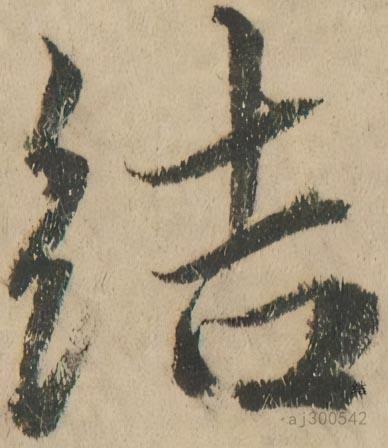 结
结
aj300542